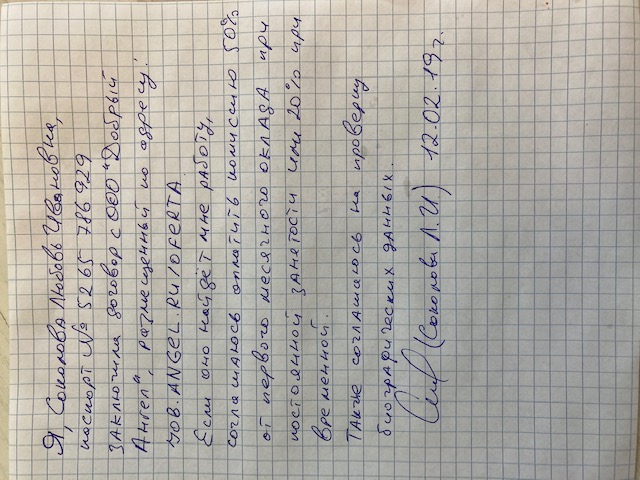 Я, Соколова Любовь Ивановна,
паспорт № 5265 786929
заключила договор с ООО "Добрый
Ангел", размещенный по адресу:
JOB.ANGEL.RU/OFERTA
Если оно найдёт мне работу,
соглашаюсь оплатить комиссию 50%
от первого месячного оклада при
постоянной занятости или 20% при
временной.
Также соглашаюсь на проверку
биографических данных.
(Соколова Л.И) 12.02.19г.